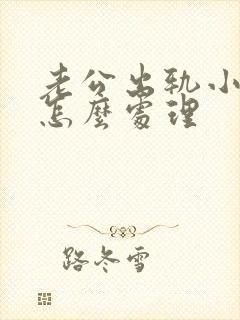 老公出轨小
怎麼處理
路冬雪